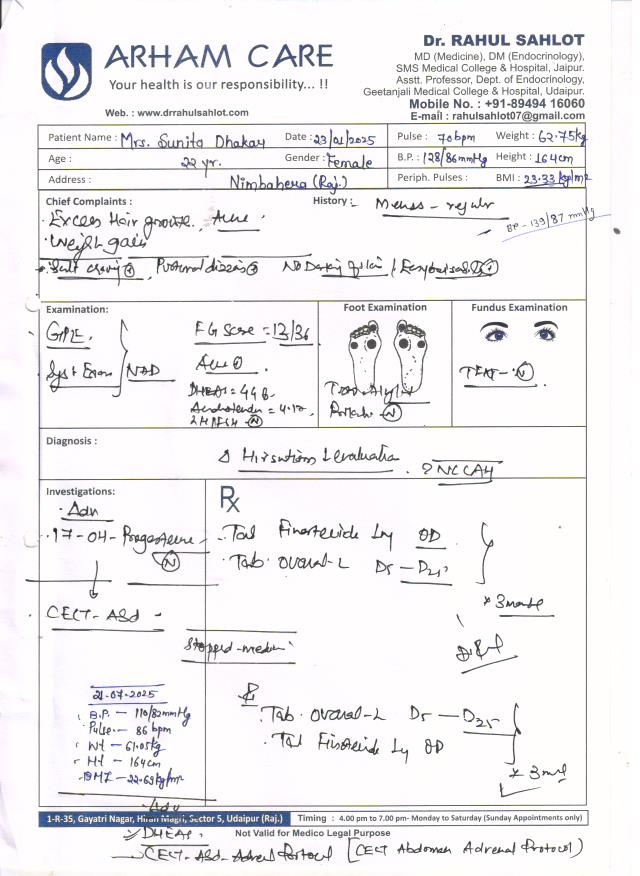 ARHAM CARE
Your health is our responsibility... !!
Web. : www.drrahulsahlot.com
Dr. RAHUL SAHLOT
MD (Medicine), DM (Endocrinology),
SMS Medical College & Hospital, Jaipur.
Asstt. Professor, Dept. of Endocrinology,
Geetanjali Medical College & Hospital, Udaipur.
Mobile No. : +91-89494 16060
E-mail : rahulsahlot07@gmail.com
Patient Name : Mrs. Sunita Dhakar Date : 23/01/2025 Pulse : 70bpm Weight : 62.75kg
Age : 22 yr. Gender : Female B.P. : 128/86mmHg Height : 164cm
Address : Nimbahera (Raj.) Periph. Pulses : BMI : 23.33 kg/m2
Chief Complaints : History :- Menses - regular
BP - 139/87 mmHg
Excess Hair growth, Acne.
Weight gain
Salt craving
Examination: Foot Examination Fundus Examination
GPE
Syst Exam NAD
FG Score = 12/36
Acne
DHEAS = 448
(N)
(N)
Diagnosis :
Δ Hirsutism ↓ evaluation . ? NCCAH
Investigations:
Rx
Adv
17-OH-Progesterone - (N)
CECT-Abd -
. Tab Finasteride 1mg OD
. Tab. Ovaral-L D5 - D25
x 3
Stopped-
21-07-2025
B.P. - 110/82mmHg
Pulse - 86 bpm
Wt - 61.05kg
Ht - 164cm
BMI - 22.69kg/m2
Rx
. Tab. Ovaral-L D5 - D25
. Tab Finasteride 1mg OD
x 3
Adv
1-R-35, Gayatri Nagar, Hiran Magri, Sector 5, Udaipur (Raj.) Timing : 4.00 pm to 7.00 pm- Monday to Saturday (Sunday Appointments only)
DHEAS. Not Valid for Medico Legal Purpose
CECT-Abd-Adrenal Protocol [CECT Abdomen Adrenal Protocol]